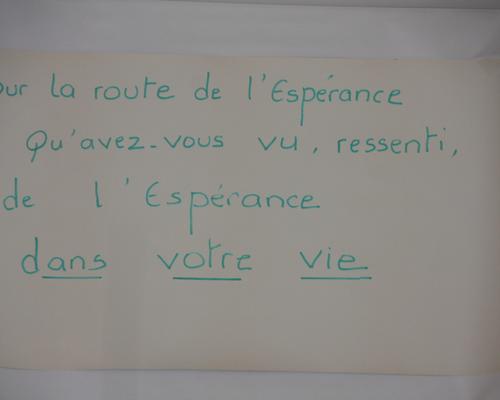 la route de l'Espérance
Qu'avez-vous vu, ressenti,
de l'Espérance
dans votre vie